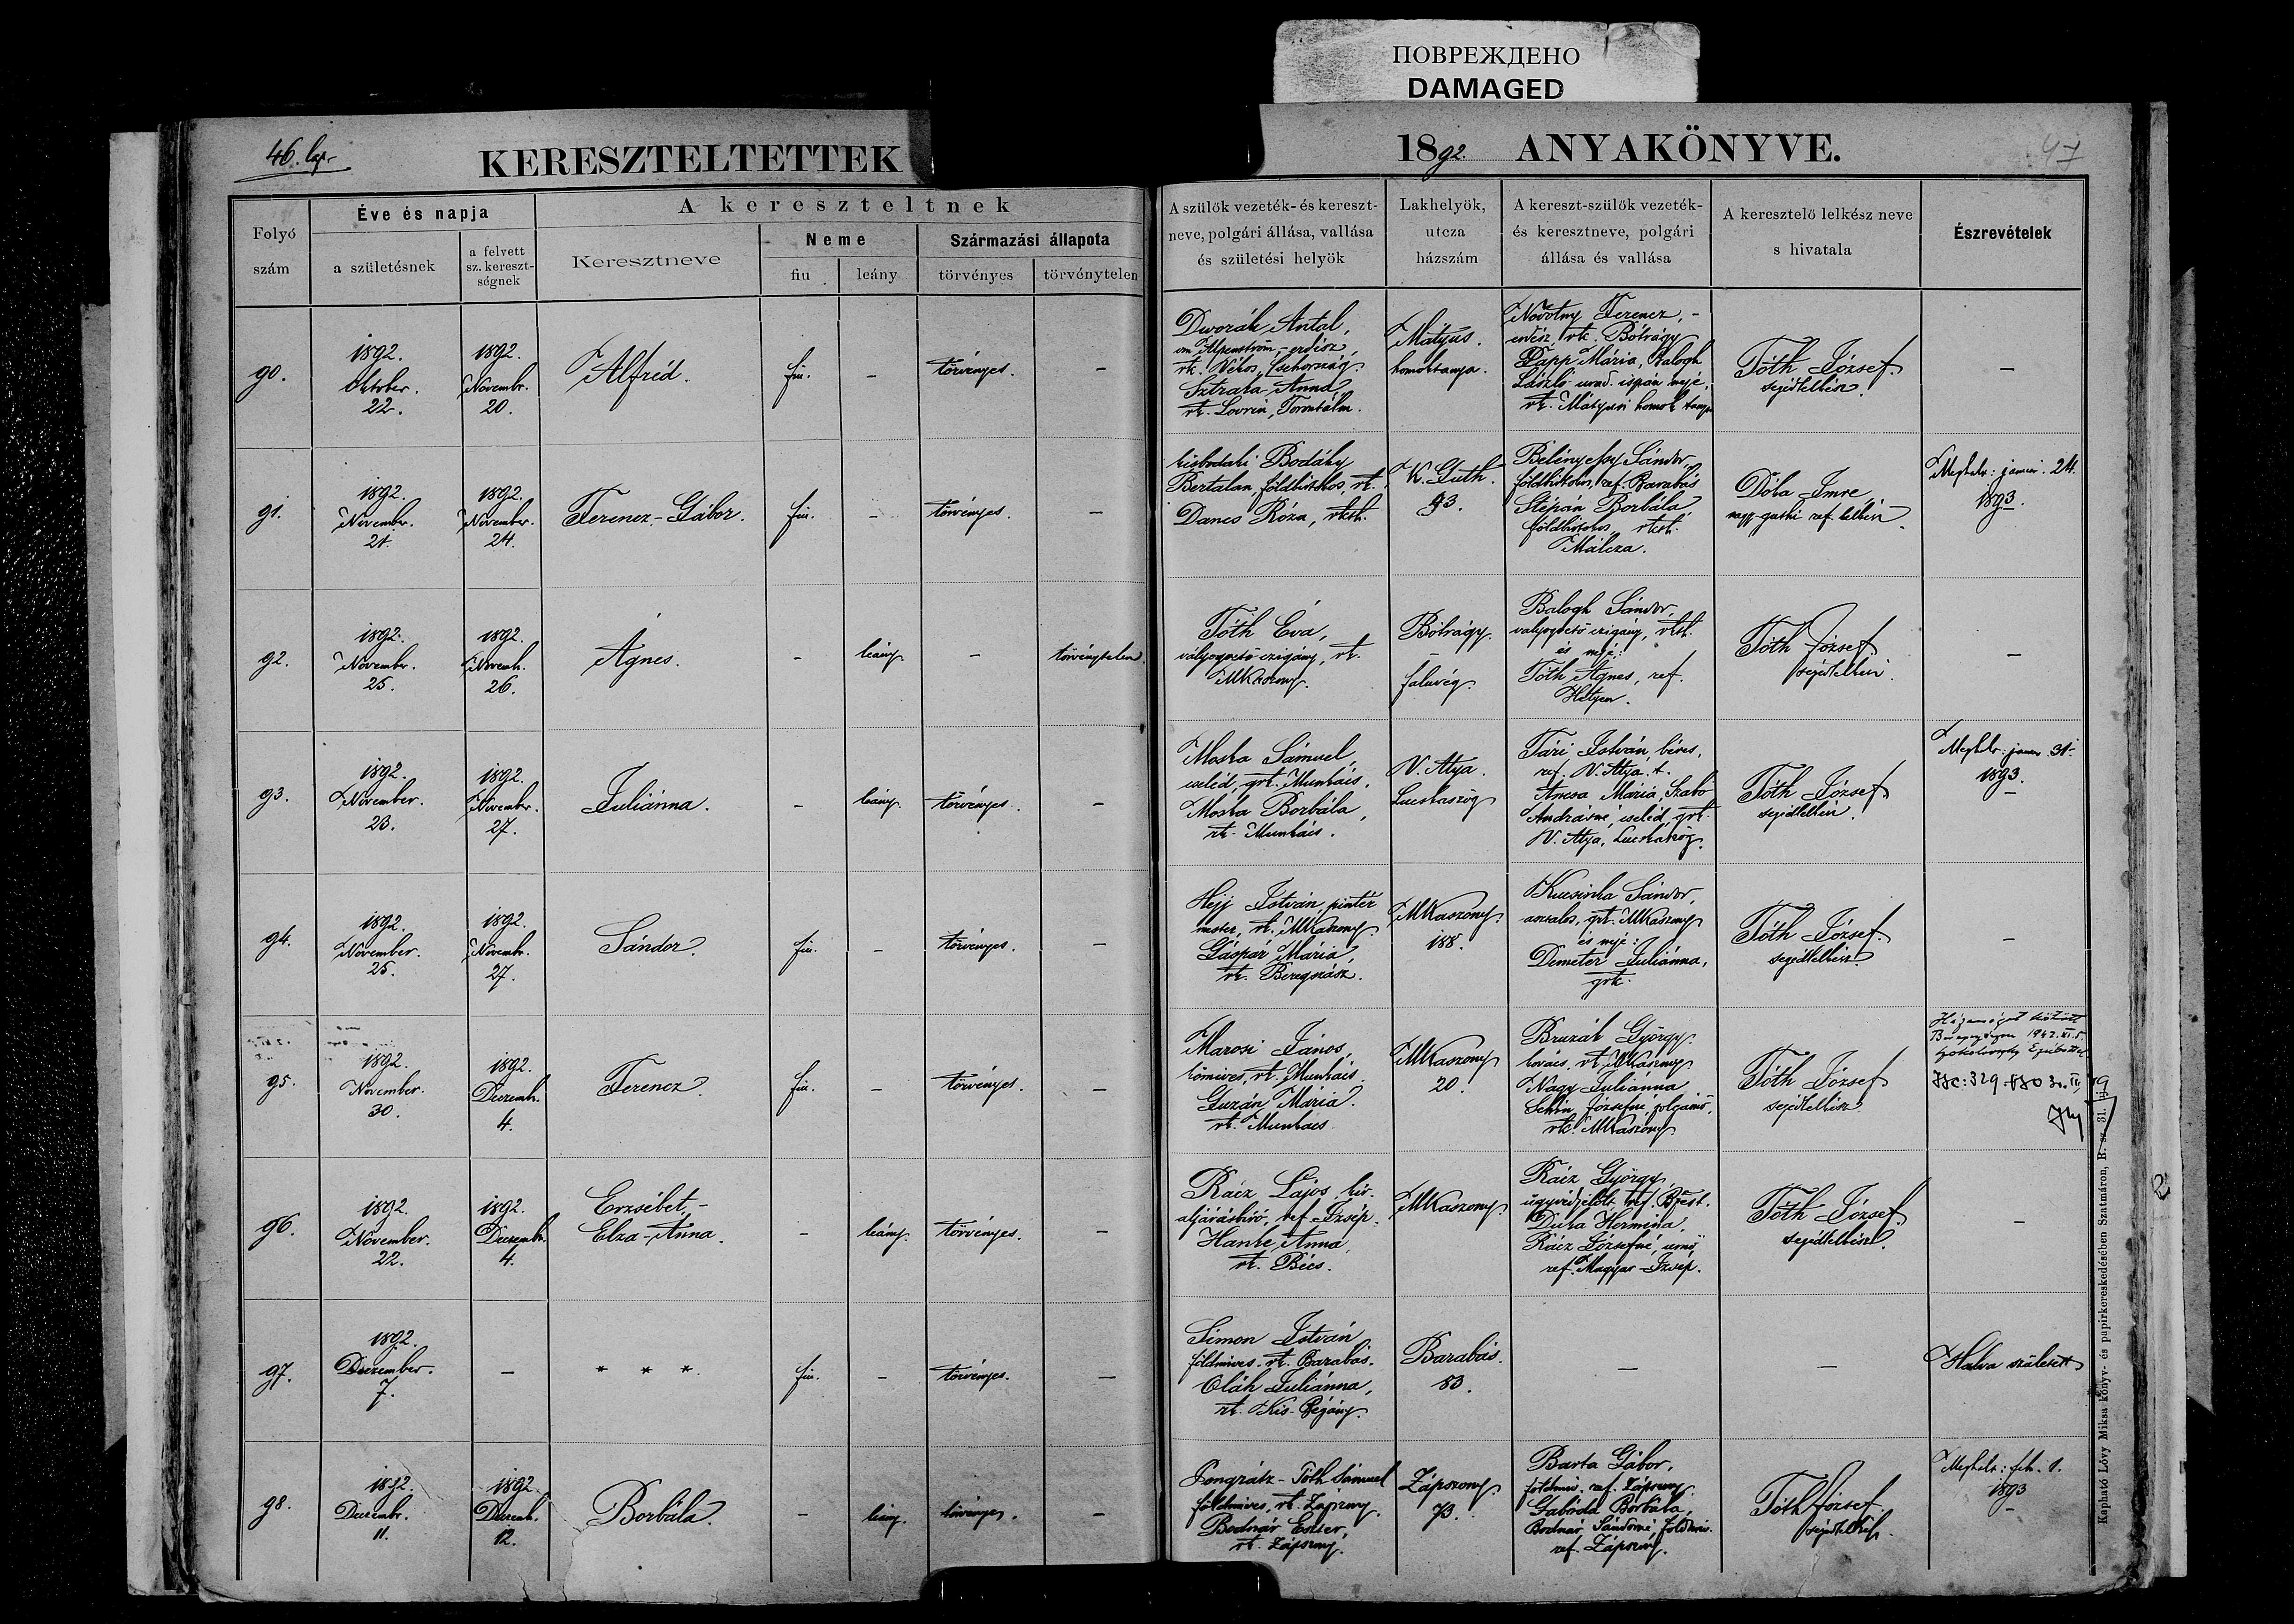 ПОВРЕЖДЕНО
DAMAGED
46. lap.
KERESZTELTETTEK
1892. ANYAKÖNYVE.
47
Folyó
szám
Éve és napja
a születésnek
a felvett
sz. kereszt-
ségnek
A kereszteltnek
Keresztneve
Neme
fiu
leány
Származási állapota
törvényes
törvénytelen
A szülök vezeték- és kereszt-
neve, polgári állása, vallása
és születési helyök
Lakhelyök,
utcza
házszám
A kereszt-szülök vezeték-
és keresztneve, polgári
állása és vallása
A keresztelö lelkész neve
s hivatala
Észrevételek
90.
1892.
Oktober.
22.
1892.
Novembr.
20.
Alfréd.
fiu.
–
törvényes.
–
Dworák Antal,
erdész,
rk. Csehország.
Anna
rk. Lovrin, Torontálm.
Mátyus.
homoktanya.
Novotny Ferencz, -
erdész, rk. Bótrágy
Papp Mária, Balogh
László urad. ispán neje.
rk. Mátyusi homok tanya
Tóth József.
segédlelkész.
–
91.
1892.
November.
21.
1892.
November.
24.
Ferencz-Gábor.
fiu.
–
törvényes.
–
Bodáky
Bertalan, földbirtokos, rk.
Dancs Róza, rkath.
K. Guth.
93.
Belényessy Sándor,
földbirtokos, ref. Barabás
Stépán Borbála
földbirtokos, rkath.
Málcza.
Dóba Imre,
nagy-guthi ref. lelkész.
Meghalt: januar. 24.
1893.
92.
1892.
Novembr.
25.
1892.
Novemb.
26.
Ágnes.
–
leány
–
törvénytelen.
Tóth Éva,
vályogvető czigány, rk.
MKaszony.
Bótrágy.
–
faluvég.
Balogh Sándor,
vályogvető czigány, rkath.
és neje:
Tóth Ágnes, ref.
Hetyen.
Tóth József
segédlelkész.
–
93.
1892.
November.
23.
1892.
Novembr.
27.
Juliánna.
–
leány.
törvényes.
–
Moska Sámuel,
cseléd, grk. Munkács.
Moska Borbála,
rk. Munkács.
V. Atya.
Lucskaszög
Tári István, béres,
ref. V. Atya.
Ancsa Maria, Szabó
Andrásné, cseléd, grk.
V. Atya, Lucskaszög.
Tóth József.
segédlelkész.
Meghalt: januar 31.
1893.
94.
1892.
November.
25.
1892.
Novemb.
27.
Sándor.
fiu.
–
törvényes.
–
Hejj István pintér
mester, rk. MKaszony.
Gáspár Mária,
rk. Beregszász.
MKaszony.
188.
Kucsinka Sándor,
asztalos, grk. MKaszony
és neje:
Demeter Juliánna,
grk.
Tóth József.
segédlelkész.
–
95.
1892.
November.
30.
1892.
Dezemb.
4.
Ferencz.
fiu.
–
törvényes.
–
Marosi János,
kömives, rk. Munkács.
Guzán Mária.
rk. Munkács
MKaszony
20.
Bruzák György.
kovács, rk. MKaszony
Nagy Julianna
Józsefné,
rk. MKaszony.
Tóth József
segédlelkész
Házasságot kötött
1942. XI. 5.
96.
1892.
November.
22.
1892.
Dezemb.
4.
Erzsébet,-
Elza-Anna.
–
leány.
törvényes.
–
Rácz Lajos kir.
aljárásbíró, ref. Izsép.
Hanke Anna,
rk. Bécs.
MKaszony.
Rácz György,
ügyvédjelölt, ref. Bpest.
Duka Hermina,
Rácz Józsefné, urnő
ref. Magyar-Izsép.
Tóth József.
segédlelkész.
–
97.
1892.
Dezember.
7.
–
* * *
fiu.
–
törvényes.
–
Simon István
földmives, rk. Barabás.
Oláh Juliánna,
rk. Kis-Régány.
Barabás.
83.
–
–
Halva született
98.
1892.
Dezembr.
11.
1892
Dezemb.
12.
Borbála.
–
leány.
törvényes.
–
Pongrátz-Tóth Sámuel
földmives, rk. Zápszony.
Bodnár Eszter,
rk. Zápszony.
Zápszony.
73.
Barta Gábor,
földmiv. ref. Zápszony.
Gabóda Borbála,
Bodnár Sándorné, földmiv.
ref. Zápszony.
Tóth József.
segédlelkész.
Meghalt: feb. 1.
1893
–
Kapható Lövy Miksa könyv- és papirkereskedésében Szatmáron, R. sz. 31.
2